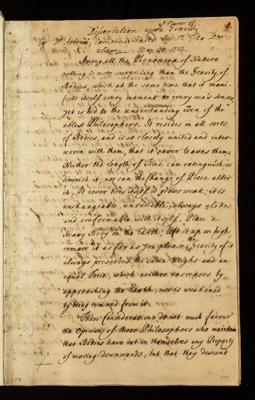 Dissertation upon the Power of Gravity
by Dr communicated
May 20. 1722
Among all the Phenomena of Nature
nothing is more surprising than the Gravity of
Bodies, which at the same time that it mani-
fests itself every moment to every man's senses
yet is hid to the understanding even of the
ablest Philosophers. It resides in all sorts
of Bodies, and is so closely united and inter-
woven with them, that it never leaves them;
Neither the Length of Time can extinguish or
diminish it, nor can the change of Place alter
it. It never tires itself or grows weak; it is
unchangeable, invincible, always alike
and conformable with itself. Place a
Heavy Body on the Earth; lift it up on high,
remove it as far as you please, the Gravity of it
always preserves the same Weight and an
equal Force, which neither encreases by
approaching the Earth, nor is weakened
by being removed from it.
These Considerations do not much favour
the Opinions of those Philosophers who maintain
that Bodies have not in themselves any Property
of moving downwards, but that they descend